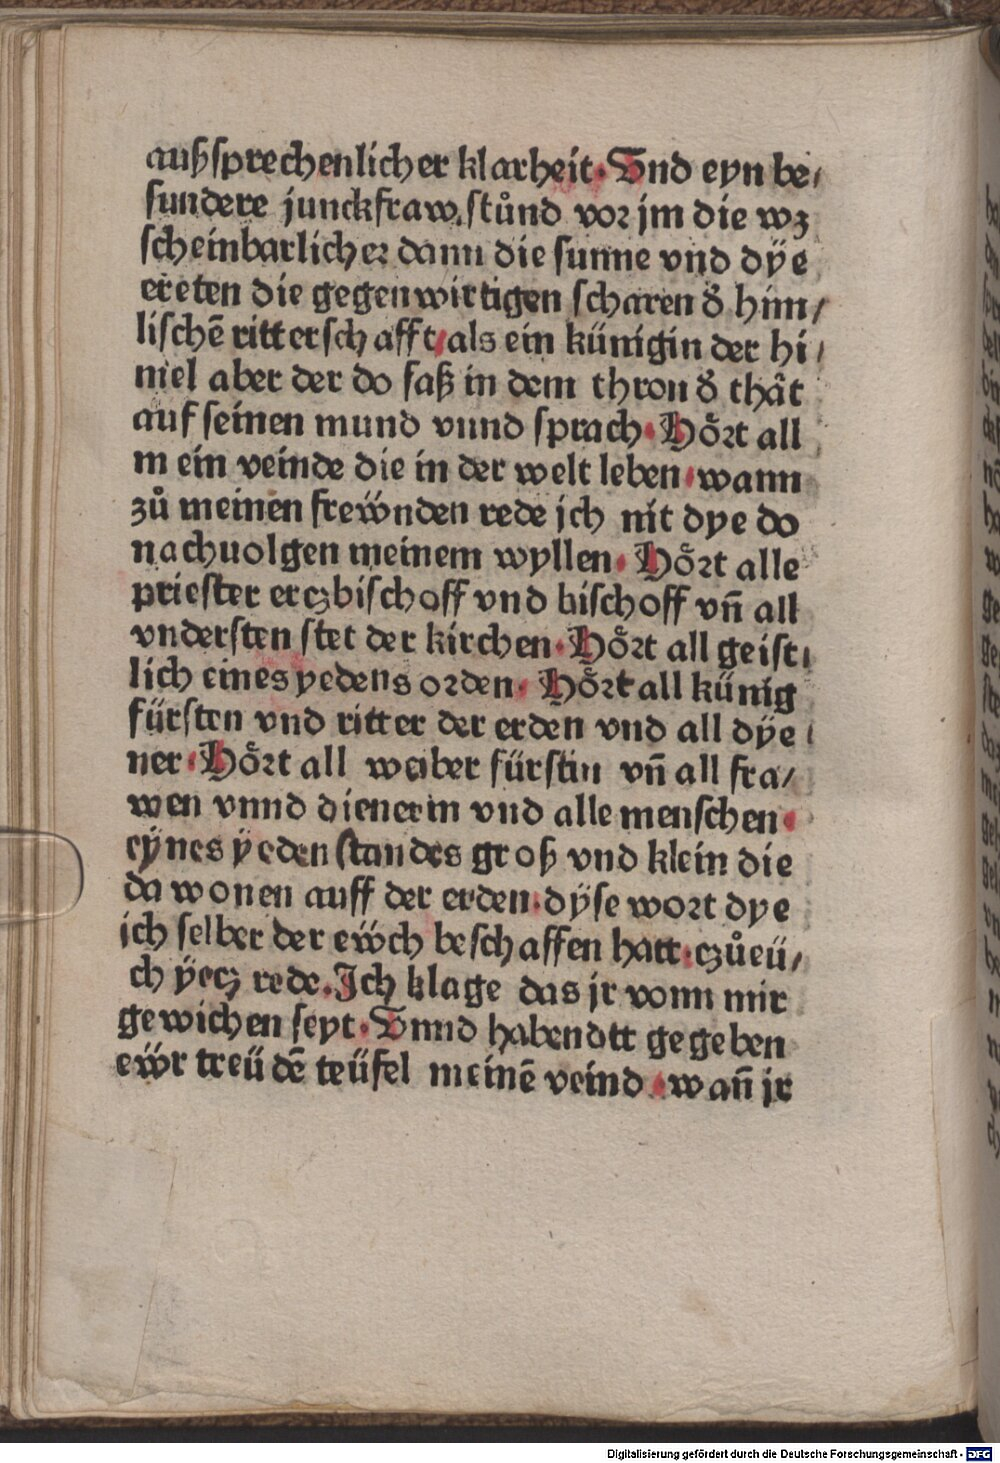 außsprechenlicher klarheit· Vnd eyn be/
sundere junckfraw. stůnd vor jm die wz
scheinbarlicher dann die sunne vnd dÿe
ereten die gegenwirtigen scharen ð him/
lischē ritterschafft/als ein künigin der hi/
mel aber der do saß in dem thron ð thât
auf seinen mund vnnd sprach· Hoͤrt all
mein veinde die in der welt leben·wann
zů meinen frewnden rede jch nit dye do
nachuolgen meinem wyllen· Hoͤrt alle
priester erczbischoff vnd bischoff vn̄ all
vndersten stet der kirchen· Hoͤrt all geist/
lich eines yedens orden· Hoͤrt all künig
fürsten vnd ritter der erden vnd all dÿe/
ner·Hoͤrt all weiber fürstin vn̄ all fra/
wen vnnd dienerin vnd alle menschen·
eÿnes ÿeden standes groß vnd klein die
da wonen auff der erden·dÿse wort dye
ich selber der eẅch beschaffen hatt·czůeü/
ch ÿecz rede.Jch klage das jr vonn mir
gewichen seyt·Vnnd habendtt gegeben
eẅr treü dē teüfel meinē veind·wan̄ jr
Digitalisierung gefördert durch die Deutsche Forschungsgemeinschaft - DFG